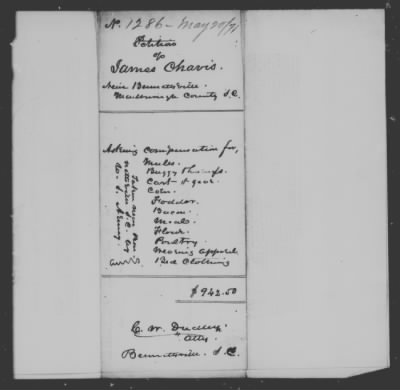 No. 1286 - May 20/71
Petition
of
James Chavis.
Near Bennettsville.
Marlborough County S.C.
Asking compensation for,
Mules.
Buggy & harness.
Cart & gear.
Corn.
Fodder.
Bacon.
Meal.
Flour.
Poultry.
Wearing apparel.
Bed Clothing
Taken near Ben
nettsville S.C. by
U.S. Army.
$942.50
C. W. Dudley.
Atty.
Bennettsville. S.C.